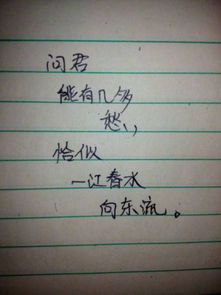 问君
能有几多
愁,,
恰似
一江春水
向东流。